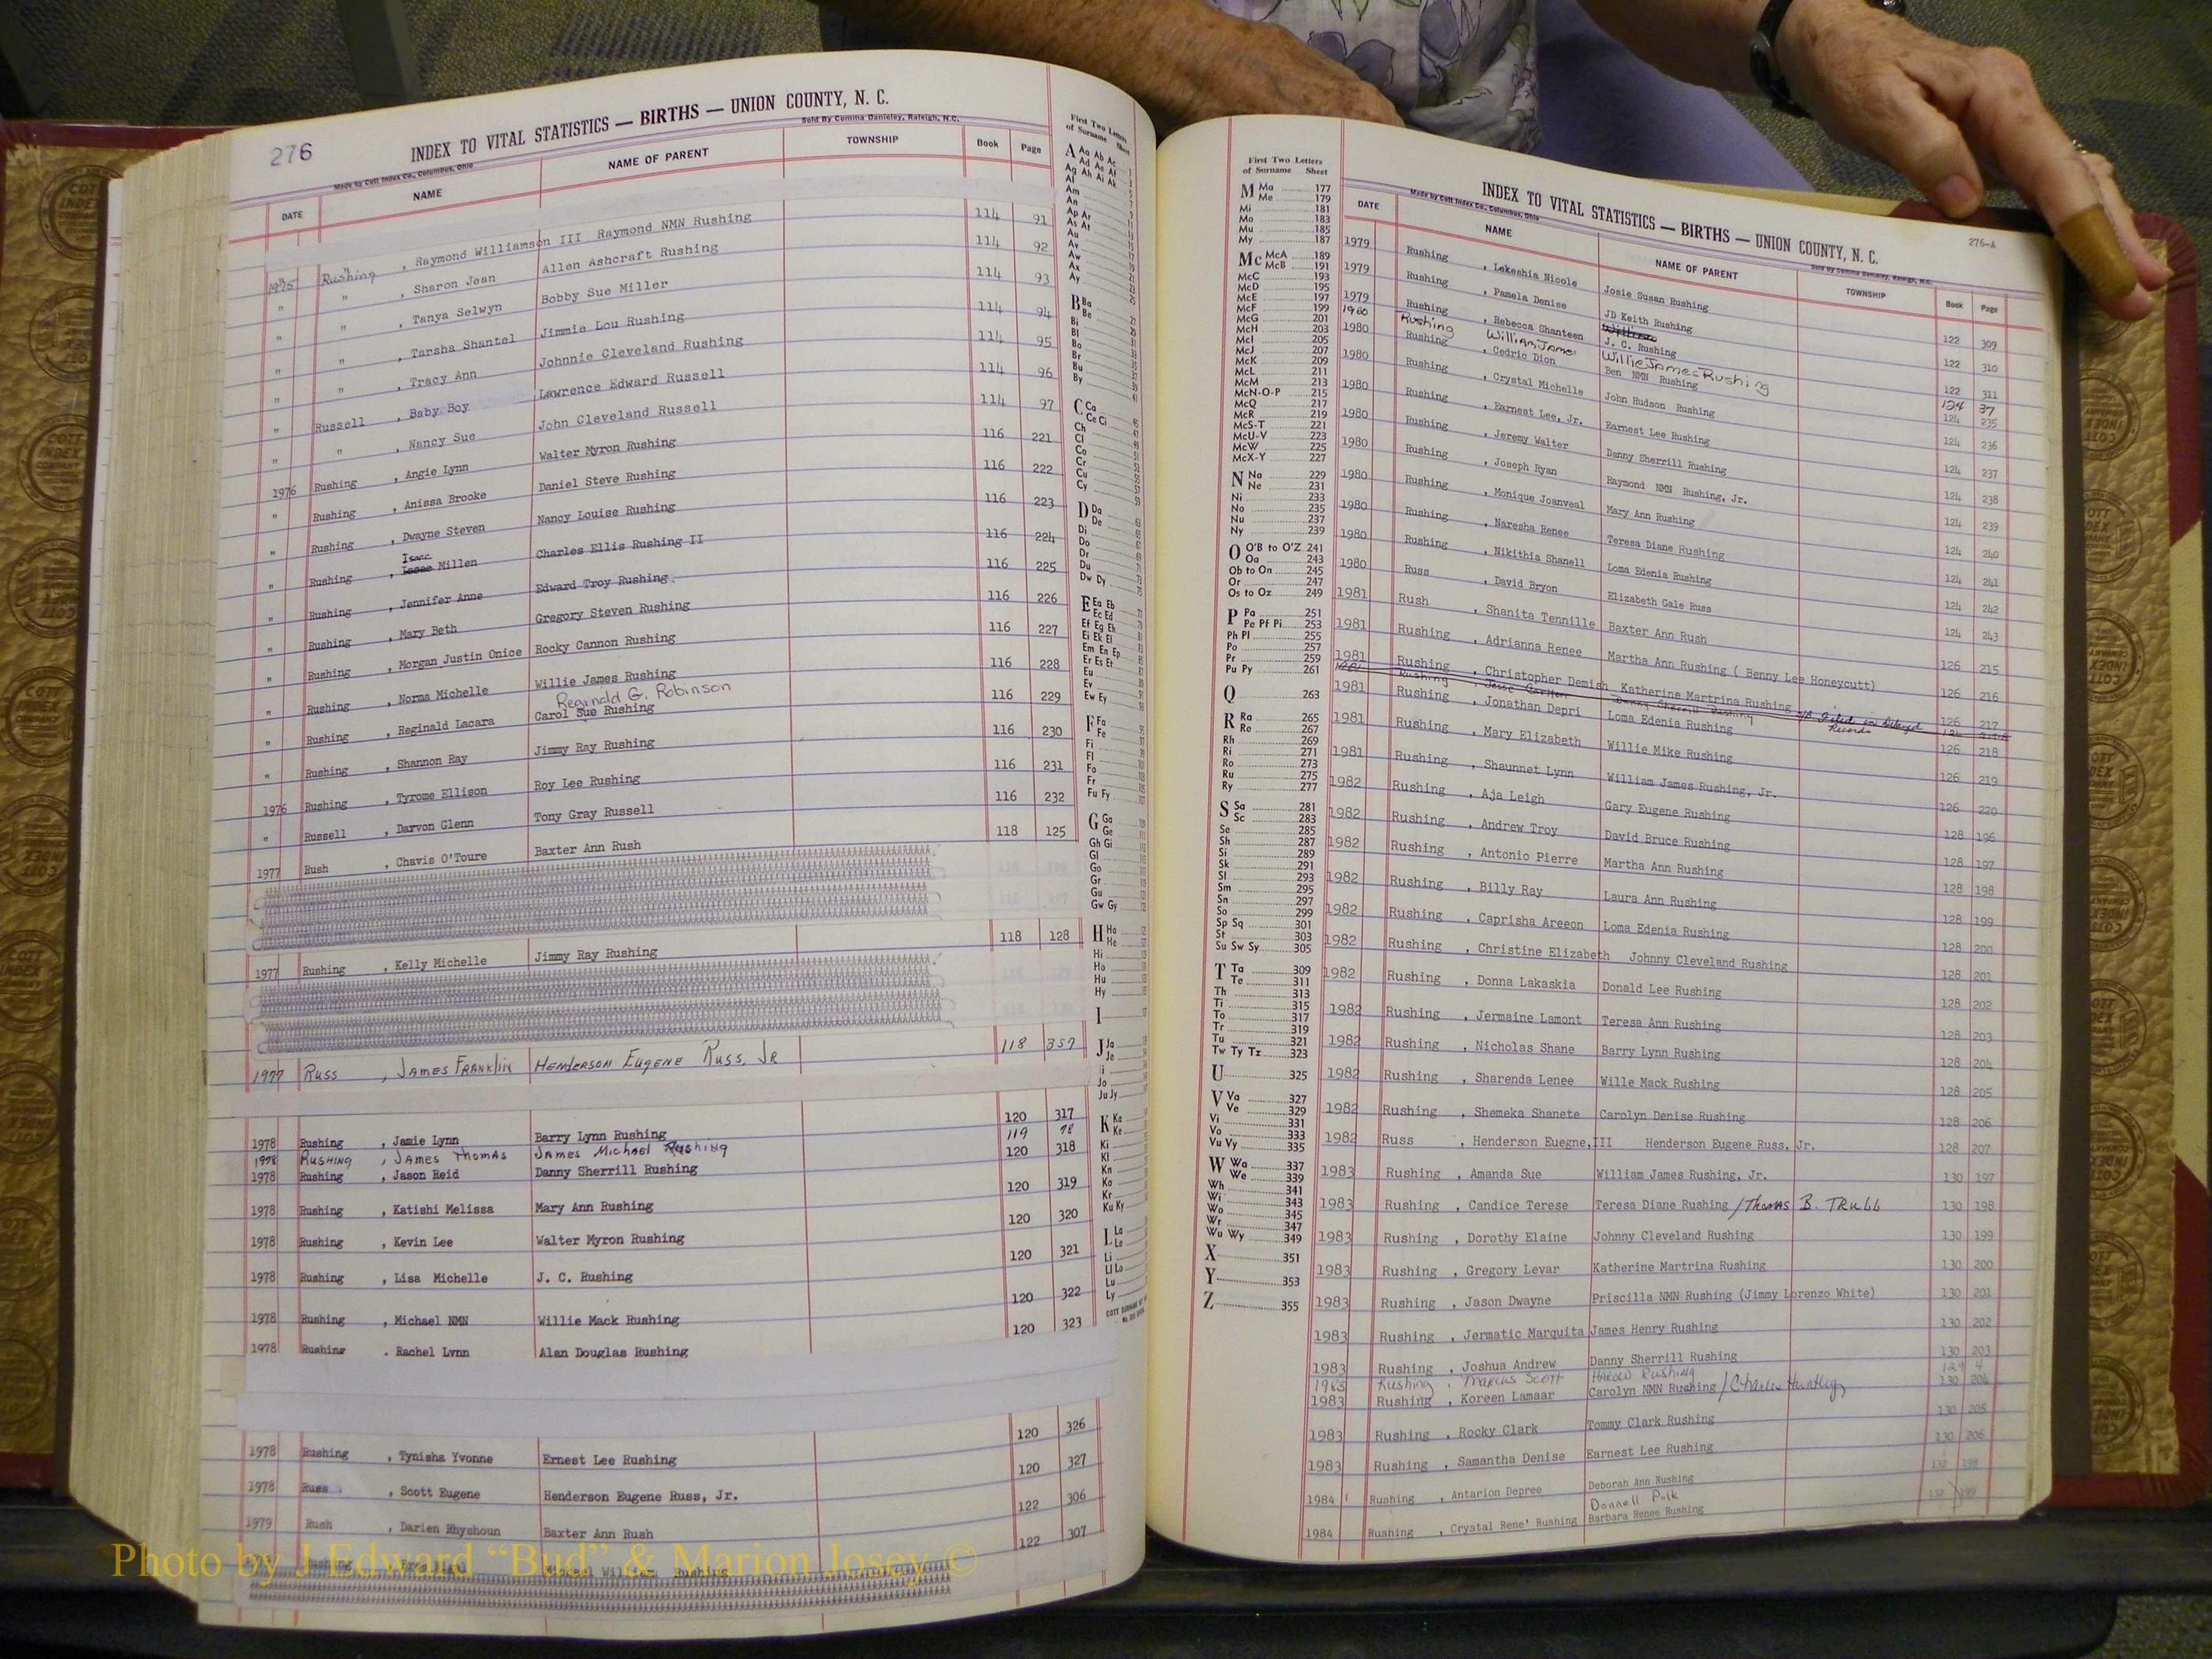 276
INDEX TO VITAL STATISTICS — BIRTHS — UNION COUNTY, N. C.
Made by Cott Index Co., Columbus, Ohio
Sold By Comma Danieley, Raleigh, N.C.
DATE NAME NAME OF PARENT TOWNSHIP Book Page
1975 Rushing , Raymond Williamson III Raymond NMN Rushing 114 91
" " , Sharon Jean Allen Ashcraft Rushing 114 92
" " , Tanya Selwyn Bobby Sue Miller 114 93
" " , Tarsha Shantel Jimmie Lou Rushing 114 94
" " , Tracy Ann Johnnie Cleveland Rushing 114 95
" Russell , Baby Boy Lawrence Edward Russell 114 96
" " , Nancy Sue John Cleveland Russell 114 97
1976 Rushing , Angie Lynn Walter Myron Rushing 116 221
" Rushing , Anissa Brooke Daniel Steve Rushing 116 222
" Rushing , Dwayne Steven Nancy Louise Rushing 116 223
Isaac
" Rushing , Millen Charles Ellis Rushing II 116 224
" Rushing , Jennifer Anne Edward Troy Rushing 116 225
" Rushing , Mary Beth Gregory Steven Rushing 116 226
" Rushing , Morgan Justin Onice Rocky Cannon Rushing 116 227
" Rushing , Norma Michelle Willie James Rushing 116 228
Reginald G. Robinson
" Rushing , Reginald Lacara Carol Sue Rushing 116 229
" Rushing , Shannon Ray Jimmy Ray Rushing 116 230
1976 Rushing , Tyrome Ellison Roy Lee Rushing 116 231
" Russell , Darvon Glenn Tony Gray Russell 116 232
1977 Rush , Chavis O'Toure Baxter Ann Rush 118 125
1977 Rushing , Kelly Michelle Jimmy Ray Rushing 118 128
1977 Russ , James Franklin Henderson Eugene Russ, Jr 118 357
1978 Rushing , Jamie Lynn Barry Lynn Rushing 120 317
1978 Rushing , James Thomas James Michael Rushing 119 78
1978 Rushing , Jason Reid Danny Sherrill Rushing 120 318
1978 Rushing , Katishi Melissa Mary Ann Rushing 120 319
1978 Rushing , Kevin Lee Walter Myron Rushing 120 320
1978 Rushing , Lisa Michelle J. C. Rushing 120 321
1978 Rushing , Michael NMN Willie Mack Rushing 120 322
1978 Rushing . Rachel Lynn Alan Douglas Rushing 120 323
1978 Rushing , Tynisha Yvonne Ernest Lee Rushing 120 326
1978 Russ , Scott Eugene Henderson Eugene Russ, Jr. 120 327
1979 Rush , Darien Rhyshoun Baxter Ann Rush 122 306
122 307
First Two Letters
of Surname Sheet
A Aa Ab Ac
Ad Ae Af
Ag Ah Ai Ak
Al
Am
An
Ap Ar
As At
Au
Av
Aw
Ax
Ay
B Ba
Be
Bi
Bl
Bo
Br
Bu
By
C Ca
Ce Ci
Ch
Cl
Co
Cr
Cu
Cy
D Da
De
Di
Do
Dr
Du
Dw Dy
E Ea Eb
Ec Ed
Ef Eg Eh
Ei Ek El
Em En Ep
Er Es Et
Eu
Ev
Ew Ey
F Fa
Fe
Fi
Fl
Fo
Fr
Fu Fy
G Ga
Ge
Gh Gi
Gl
Go
Gr
Gu
Gw Gy
H Ha
He
Hi
Ho
Hu
Hy
I
J Ja
Je
Ji
Jo
Ju Jy
K Ka
Ke
Ki
Kl
Kn
Ko
Kr
Ku Ky
L La
Le
Li
Ll Lo
Lu
Ly
First Two Letters
of Surname Sheet
M Ma 177
Me 179
Mi 181
Mo 183
Mu 185
My 187
Mc McA 189
McB 191
McC 193
McD 195
McE 197
McF 199
McG 201
McH 203
McI 205
McJ 207
McK 209
McL 211
McM 213
McN-O-P 215
McQ 217
McR 219
McS-T 221
McU-V 223
McW 225
McX-Y 227
N Na 229
Ne 231
Ni 233
No 235
Nu 237
Ny 239
O O'B to O'Z 241
Oa 243
Ob to On 245
Or 247
Os to Oz 249
P Pa 251
Pe Pf Pi 253
Ph Pl 255
Po 257
Pr 259
Pu Py 261
Q 263
R Ra 265
Re 267
Rh 269
Ri 271
Ro 273
Ru 275
Ry 277
S Sa 281
Sc 283
Se 285
Sh 287
Si 289
Sk 291
Sl 293
Sm 295
Sn 297
So 299
Sp Sq 301
St 303
Su Sw Sy 305
T Ta 309
Te 311
Th 313
Ti 315
To 317
Tr 319
Tu 321
Tw Ty Tz 323
U 325
V Va 327
Ve 329
Vi 331
Vo 333
Vu Vy 335
W Wa 337
We 339
Wh 341
Wi 343
Wo 345
Wr 347
Wu Wy 349
X 351
Y 353
Z 355
276-A
INDEX TO VITAL STATISTICS — BIRTHS — UNION COUNTY, N. C.
Made by Cott Index Co., Columbus, Ohio
Sold By Comma Danieley, Raleigh, N.C.
DATE NAME NAME OF PARENT TOWNSHIP Book Page
1979 Rushing , Lekeshia Nicole Josie Susan Rushing 122 309
1979 Rushing , Pamela Denise JD Keith Rushing 122 310
1979 Rushing , Rebecca Shanteen J. C. Rushing 122 311
1980 Rushing William James Willie James Rushing 124 37
1980 Rushing , Cedric Dion Ben NMN Rushing 124 235
1980 Rushing , Crystal Michelle John Hudson Rushing 124 236
1980 Rushing , Earnest Lee, Jr. Earnest Lee Rushing 124 237
1980 Rushing , Jeremy Walter Danny Sherrill Rushing 124 238
1980 Rushing , Joseph Ryan Raymond NMN Rushing, Jr. 124 239
1980 Rushing , Monique Joanveal Mary Ann Rushing 124 240
1980 Rushing , Naresha Renee Teresa Diane Rushing 124 241
1980 Rushing , Nikithia Shanell Loma Edenia Rushing 124 242
1980 Russ , David Bryon Elizabeth Gale Russ 124 243
1981 Rush , Shanita Tennille Baxter Ann Rush 126 215
1981 Rushing , Adrianna Renee Martha Ann Rushing ( Benny Lee Honeycutt) 126 216
1981 Rushing , Christopher Demish Katherine Martrina Rushing 126 217
Rushing , Jesse Carlton Danny Sherrill Rushing filed in Delayed Records
1981 Rushing , Jonathan Depri Loma Edenia Rushing 126 218
1981 Rushing , Mary Elizabeth Willie Mike Rushing 126 219
1981 Rushing , Shaunnet Lynn William James Rushing, Jr. 126 220
1982 Rushing , Aja Leigh Gary Eugene Rushing 128 196
1982 Rushing , Andrew Troy David Bruce Rushing 128 197
1982 Rushing , Antonio Pierre Martha Ann Rushing 128 198
1982 Rushing , Billy Ray Laura Ann Rushing 128 199
1982 Rushing , Caprisha Areeon Loma Edenia Rushing 128 200
1982 Rushing , Christine Elizabeth Johnny Cleveland Rushing 128 201
1982 Rushing , Donna Lakaskia Donald Lee Rushing 128 202
1982 Rushing , Jermaine Lamont Teresa Ann Rushing 128 203
1982 Rushing , Nicholas Shane Barry Lynn Rushing 128 204
1982 Rushing , Sharenda Lenee Wille Mack Rushing 128 205
1982 Rushing , Shemeka Shanete Carolyn Denise Rushing 128 206
1982 Russ , Henderson Euegne,III Henderson Eugene Russ, Jr. 128 207
1983 Rushing , Amanda Sue William James Rushing, Jr. 130 197
1983 Rushing , Candice Terese Teresa Diane Rushing / Thomas B. Trull 130 198
1983 Rushing , Dorothy Elaine Johnny Cleveland Rushing 130 199
1983 Rushing , Gregory Levar Katherine Martrina Rushing 130 200
1983 Rushing , Jason Dwayne Priscilla NMN Rushing (Jimmy Lorenzo White) 130 201
1983 Rushing , Jermatic Marquita James Henry Rushing 130 202
1983 Rushing , Joshua Andrew Danny Sherrill Rushing 130 203
1983 Rushing , Marcus Scott Harold Rushing 129 4
1983 Rushing , Koreen Lamaar Carolyn NMN Rushing / Charlie Huntley 130 204
1983 Rushing , Rocky Clark Tommy Clark Rushing 130 205
1983 Rushing , Samantha Denise Earnest Lee Rushing 130 206
1984 Rushing , Antarion Depree Deborah Ann Rushing 132 198
Donnell Polk
1984 Rushing , Crystal Rene' Rushing Barbara Renee Rushing 132 199
Photo by J Edward “Bud” & Marion Josey ©